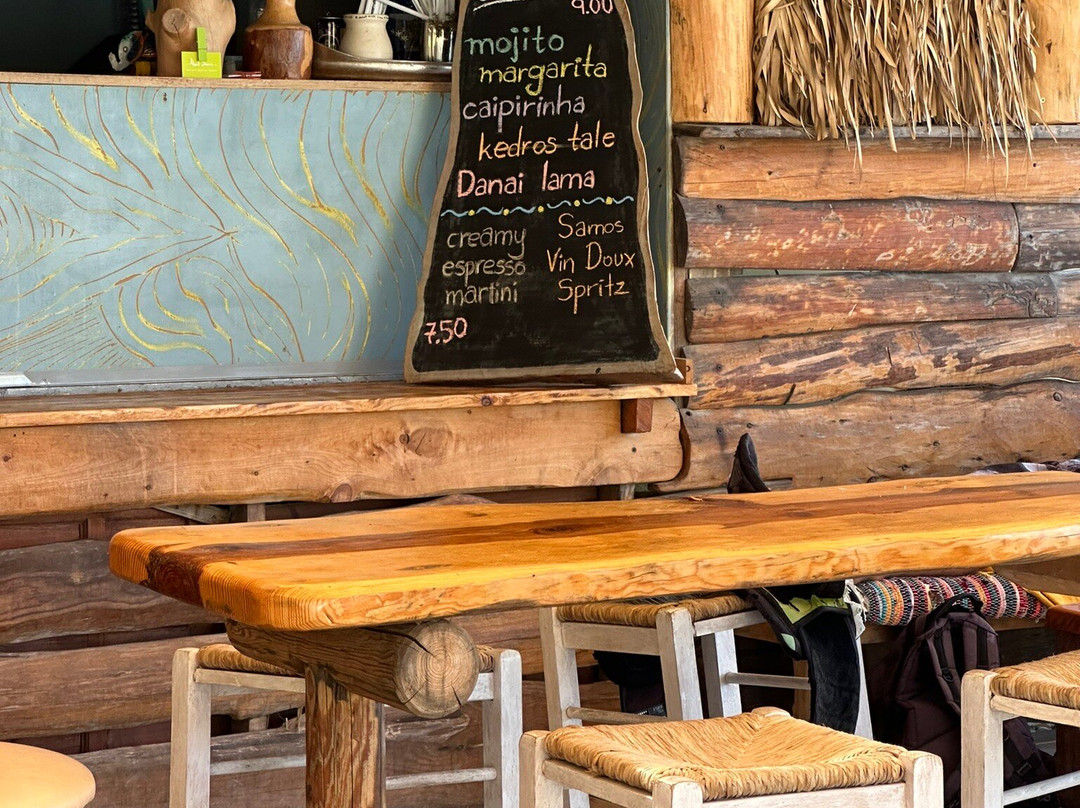 9.00
mojito
margarita
caipirinha
kedros tale
Danai lama
creamy
espresso
martini
7.50
Samos
Vin Doux
Spritz